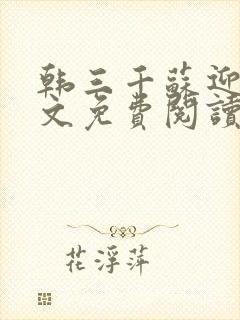 韩三千蘇迎
文免費閱讀
花浮萍